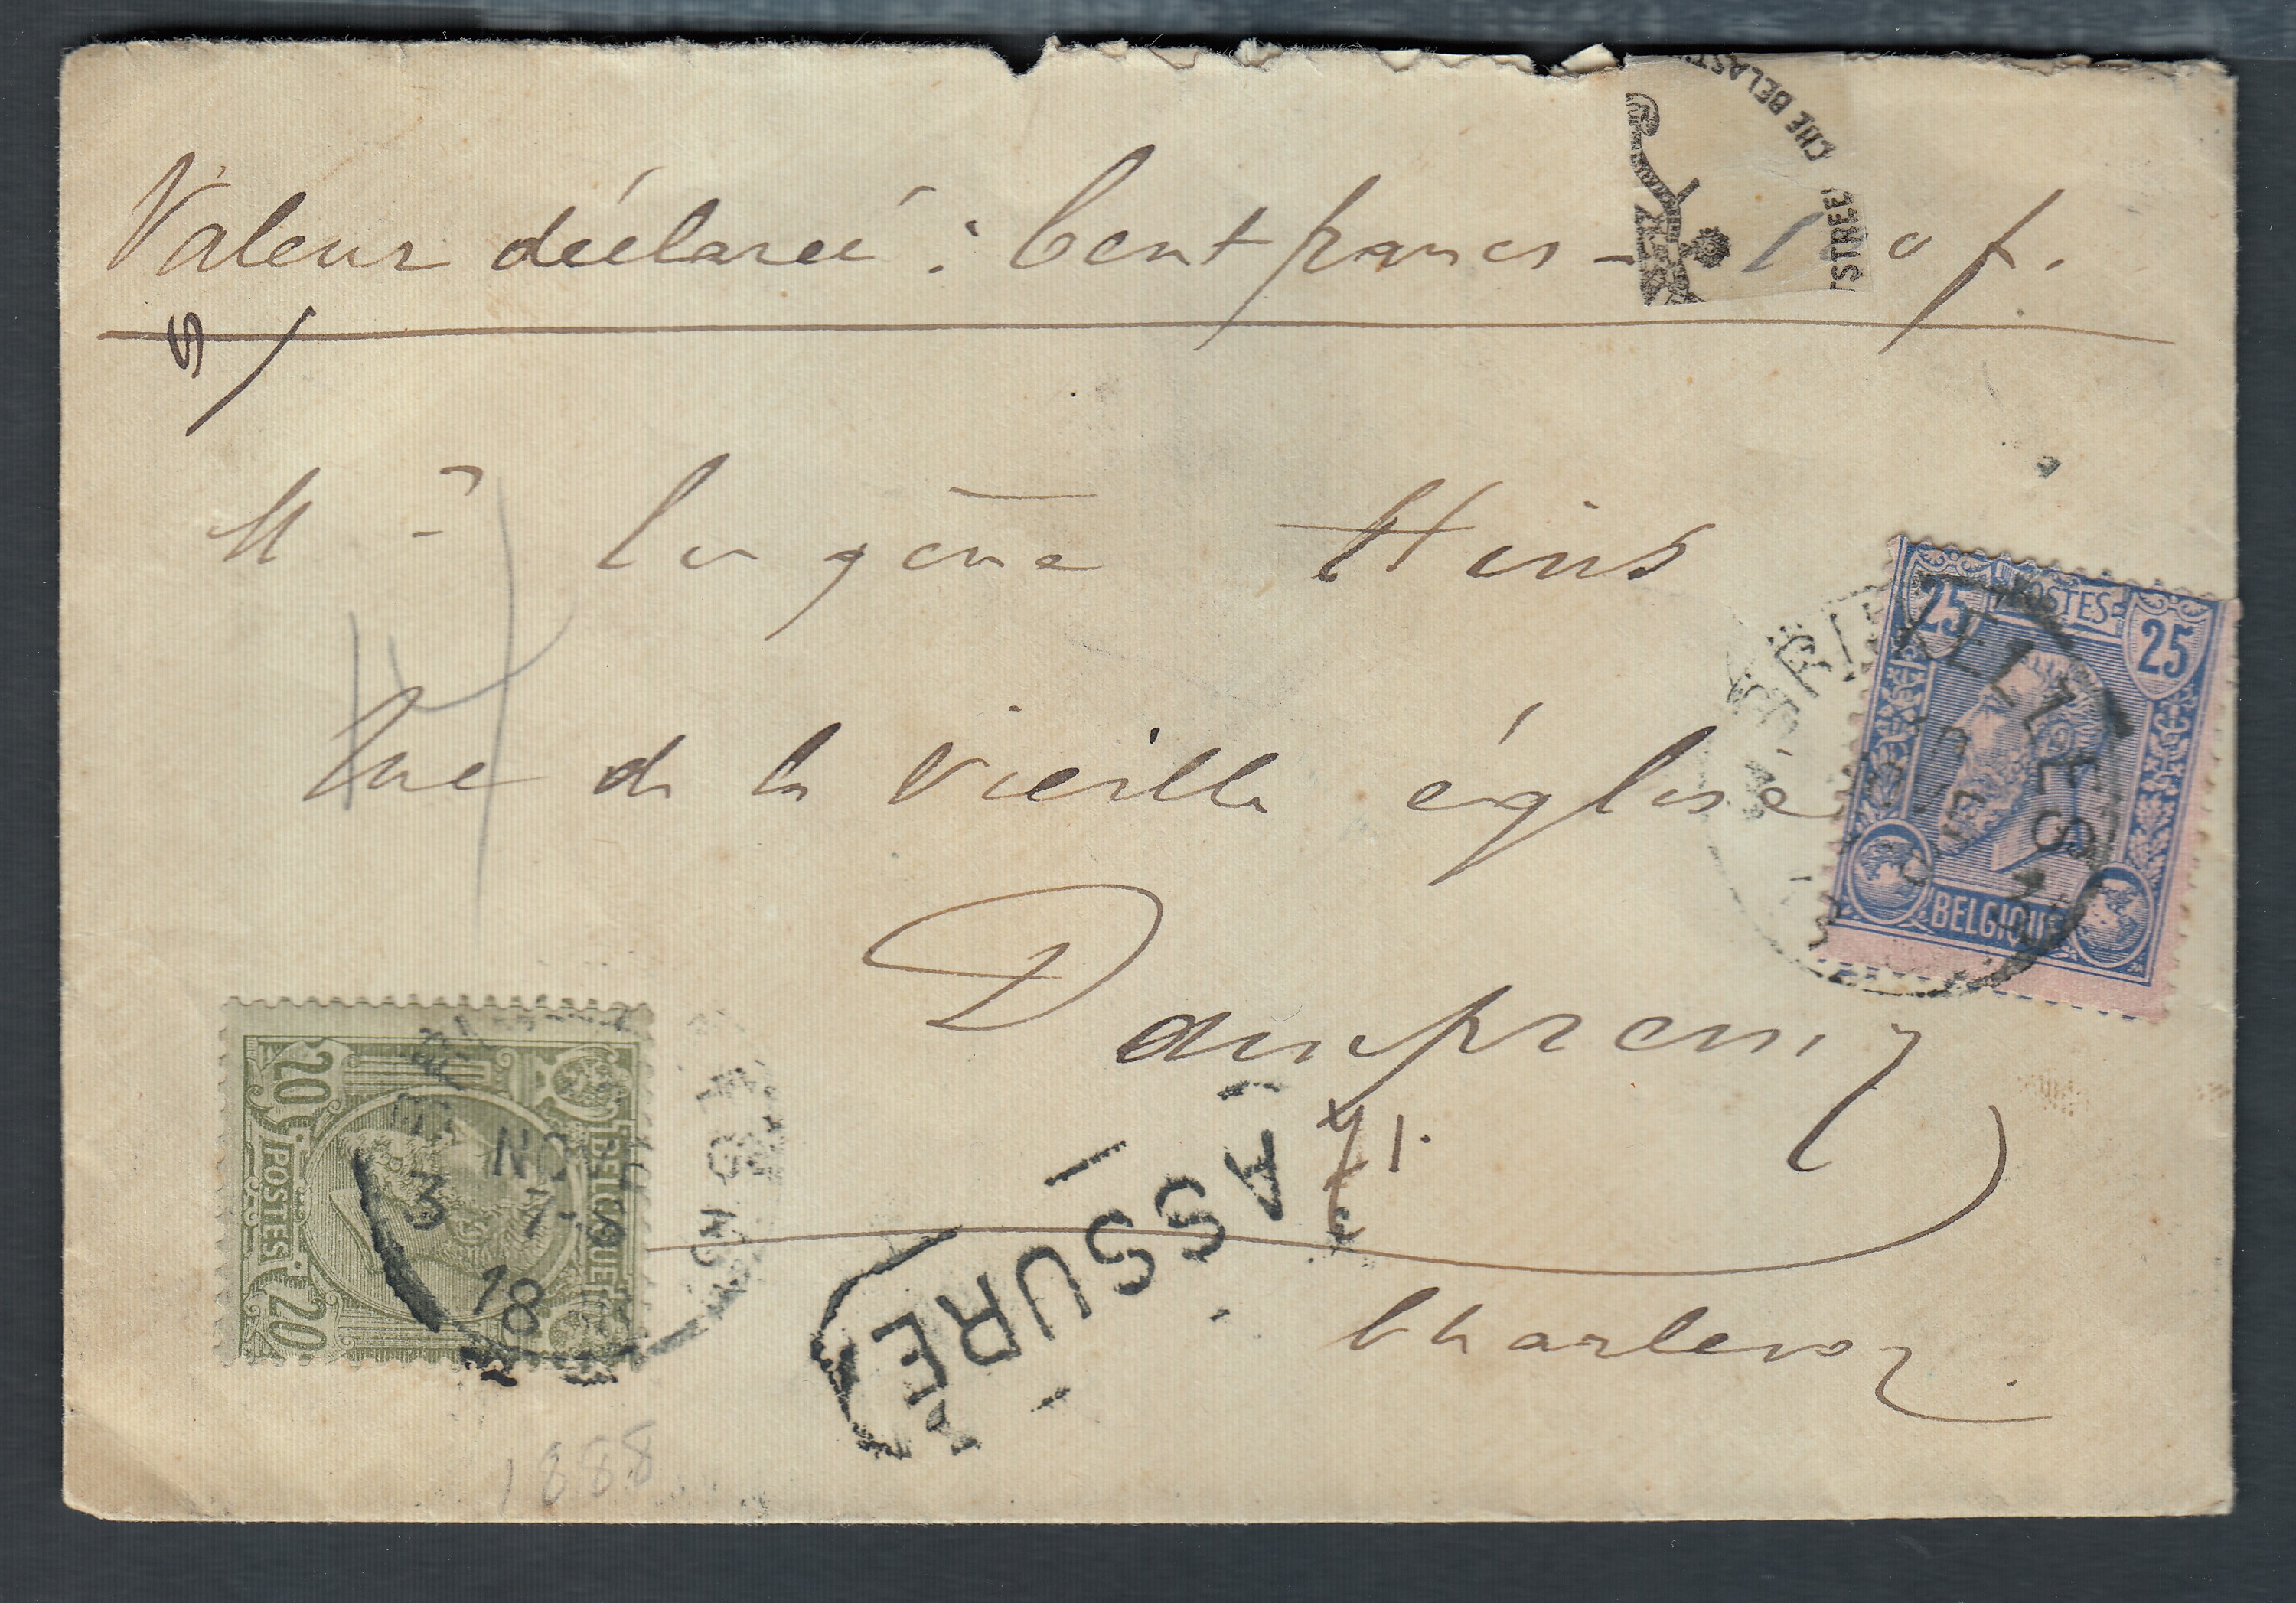 CHE BELAST
STREE
Valeur déclarée : Cent francs - 100 f.
M Eugène Hins
25 POSTES 25
Rue de la Vieille église
BELGIQUE
Dampremy
20 POSTES 20
BELGIQUE
NO
3
18
ASSURE
Charleroi.
1888